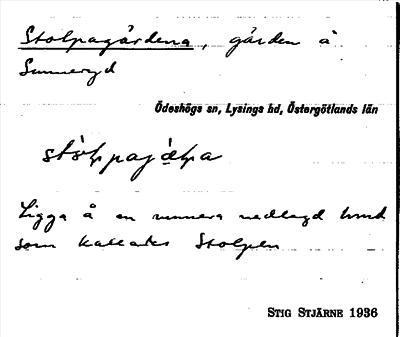 Stolpagårdena, gården å
Sunneryd
Ödeshögs sn, Lysings hd, Östergötlands län
Ligga å en numera nedlagd tomt
som kallades Stolpen
STIG STJÄRNE 1936